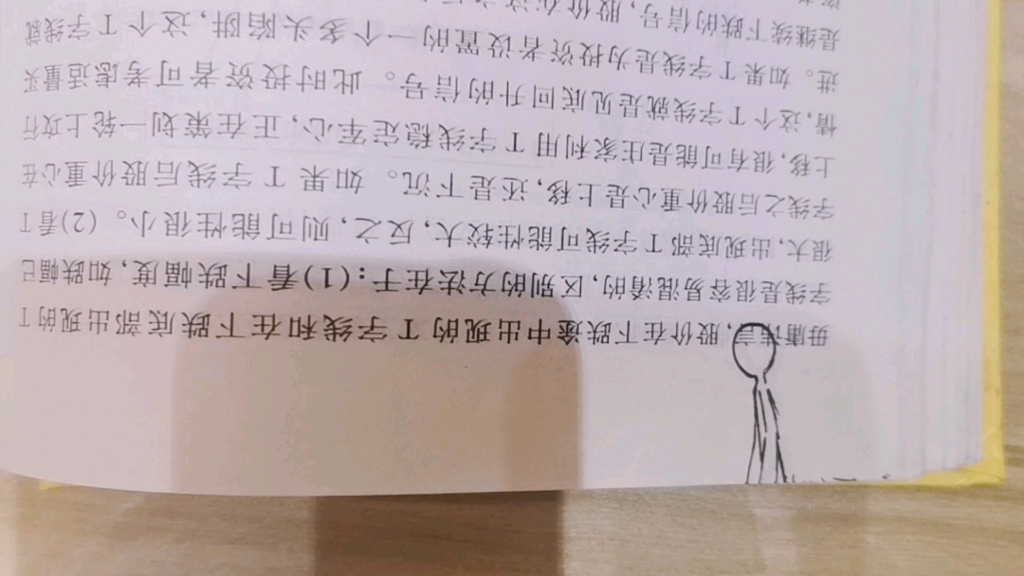 毋庸讳言,股价在下跌途中出现的T字线和在下跌底部出现的T
字线是很容易混淆的,区别的方法在于:(1)看下跌幅度,如跌幅已
很大,出现底部T字线可能性较大,反之,则可能性很小。(2)看T
字线之后股价重心是上移,还是下沉。如果T字线后股价重心在
上移,很有可能是庄家利用T字线稳定军心,正在策划一轮上攻行
情,这个T字线就是见底回升的信号。此时投资者可考虑适量买
进。如果T字线是为投资者设置的一个多头陷阱,这个T字线就
是继续下跌的信号,股价在这